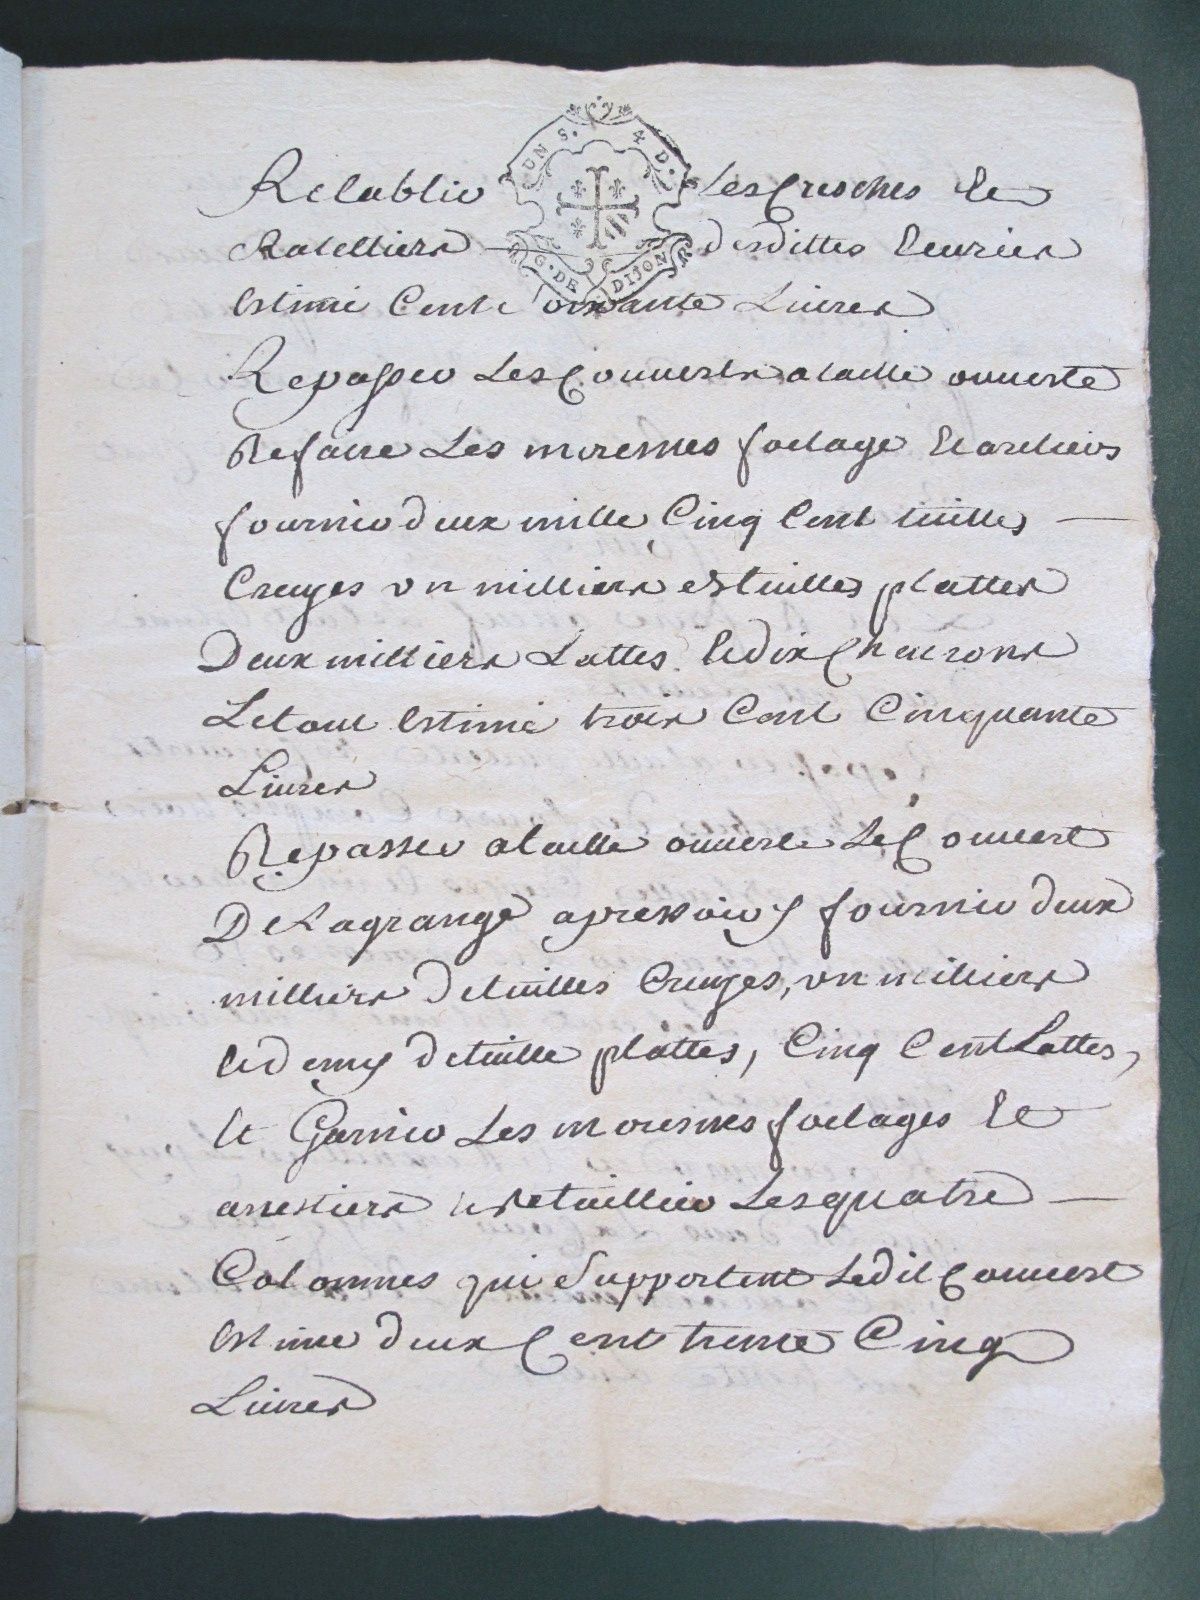 UN S. 4 D.
G. DE DIJON
Retablir les Creches Et
Ratelliers desdittes Ecuries
Estimé Cent soixante Livres
Repasser Les Couverts a taille ouverte
Refaire Les moresnes foetage Et arestiers
fournir deux mille Cinq Cent tuilles
Creuses un milliers de tuilles plattes
Deux milliers Lattes Et dix Chevrons
Le tout Estimé trois Cent Cinquante
Livres
Repasser a taille ouverte Le Couvert
De La grange a pressoirs fournir deux
milliers de tuilles Creuses, un milliers
Et demy de tuille plattes, Cinq Cent Lattes,
Et Garnir Les moresnes foetages Et
arestiers Et Retaillier Les quatre
Colonnes qui Supportent Ledit Couvert
Estimé deux Cent trente Cinq
Livres